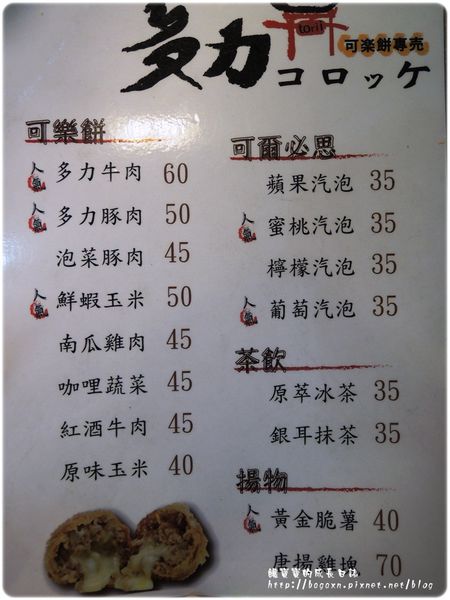 多力
torii
可楽餅專売
コロッケ
可樂餅
人氣 多力牛肉 60
人氣 多力豚肉 50
泡菜豚肉 45
人氣 鮮蝦玉米 50
南瓜雞肉 45
咖哩蔬菜 45
紅酒牛肉 45
原味玉米 40
可爾必思
蘋果汽泡 35
人氣 蜜桃汽泡 35
檸檬汽泡 35
人氣 葡萄汽泡 35
茶飲
原萃冰茶 35
銀耳抹茶 35
揚物
人氣 黃金脆薯 40
唐揚雞塊 70
http://bogoxn.pixnet.net/blog